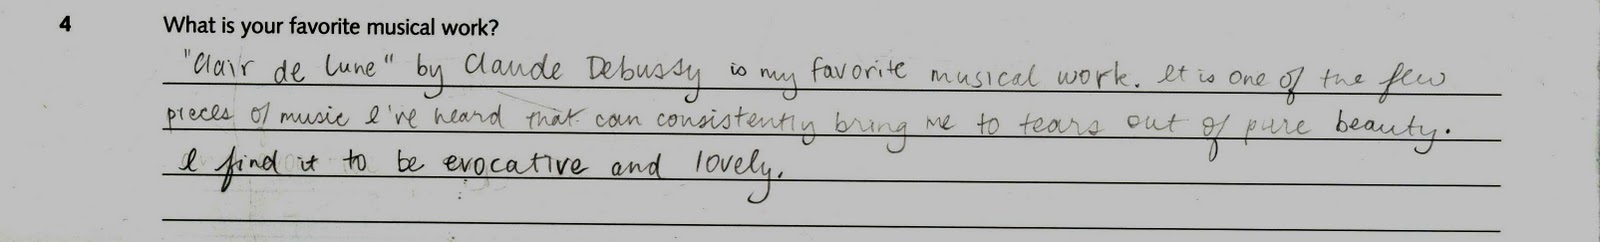 4 What is your favorite musical work?
"Clair de Lune" by Claude Debussy is my favorite musical work. It is one of the few
pieces of music I've heard that can consistently bring me to tears out of pure beauty.
I find it to be evocative and lovely.